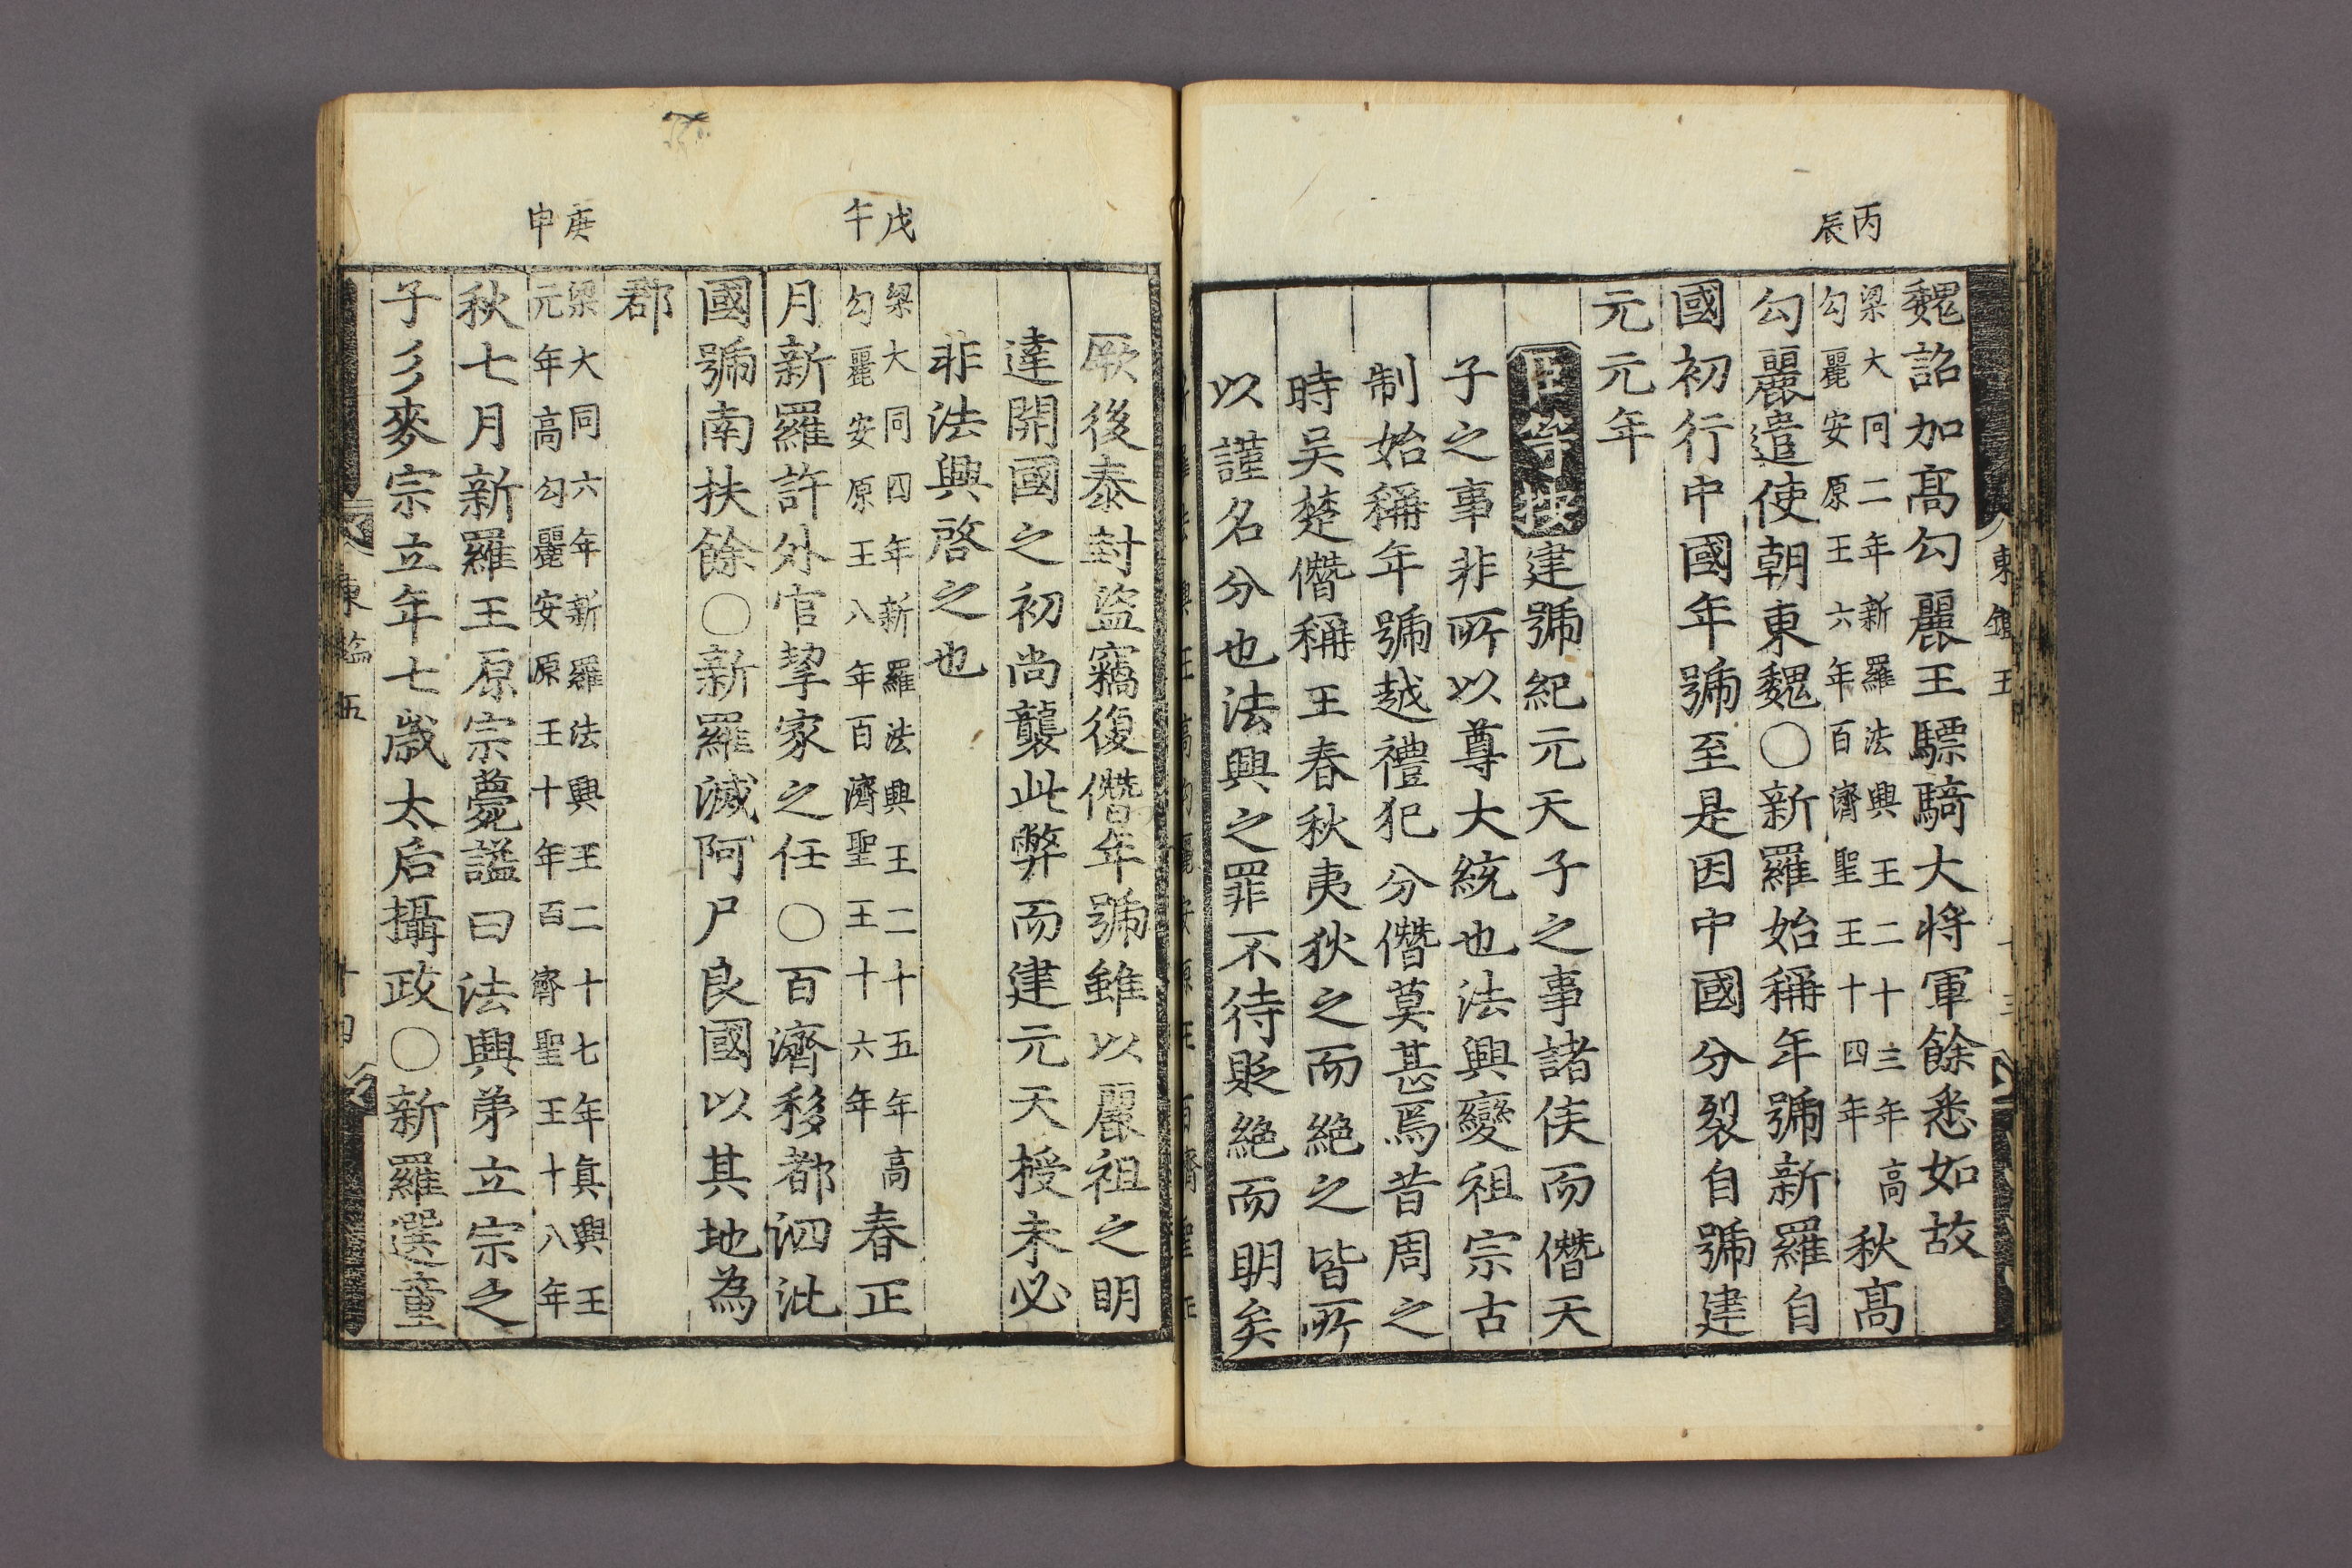 丙辰
魏詔加高勾麗王驃騎大将軍餘悉如故
梁大同二年新羅法興王二十三年高
勾麗安原王六年百濟聖王十四年
秋高
勾麗遣使朝東魏○新羅始稱年號新羅自
國初行中國年號至是因中國分裂自號建
元元年
臣等按建號紀元天子之事諸侯而僭天
子之事非所以尊大統也法興變祖宗古
制始稱年號越禮犯分僭莫甚焉昔周之
時吴楚僭稱王春秋夷狄之而絶之皆所
以謹名分也法興之罪不待貶絶而明矣
戊午
庚申
厥後泰封盜竊復僭年號雖以麗祖之明
達開國之初尚襲此弊而建元天授未必
非法興啓之也
梁大同四年新羅法興王二十五年高
勾麗安原王八年百濟聖王十六年
春正
月新羅許外官挈家之任○百濟移都泗沘
國號南扶餘○新羅滅阿尸良國以其地為
郡
梁大同六年新羅法興王二十七年真興王
元年高勾麗安原王十年百濟聖王十八年
秋七月新羅王原宗薨謚曰法興弟立宗之
子彡麥宗立年七歲太后攝政○新羅選童
東
五
十四